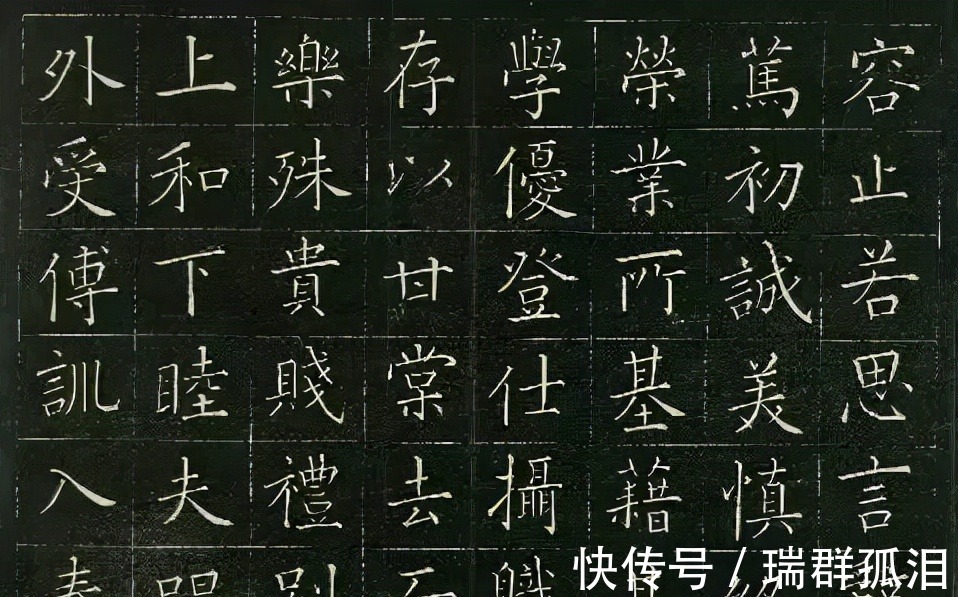 容止若思言
篤初誠美慎
榮業所基藉
學優登仕攝職
存以甘棠去
樂殊貴賤禮別
上和下睦夫
外受傅訓入奉
快传号 / 瑞群孤泪